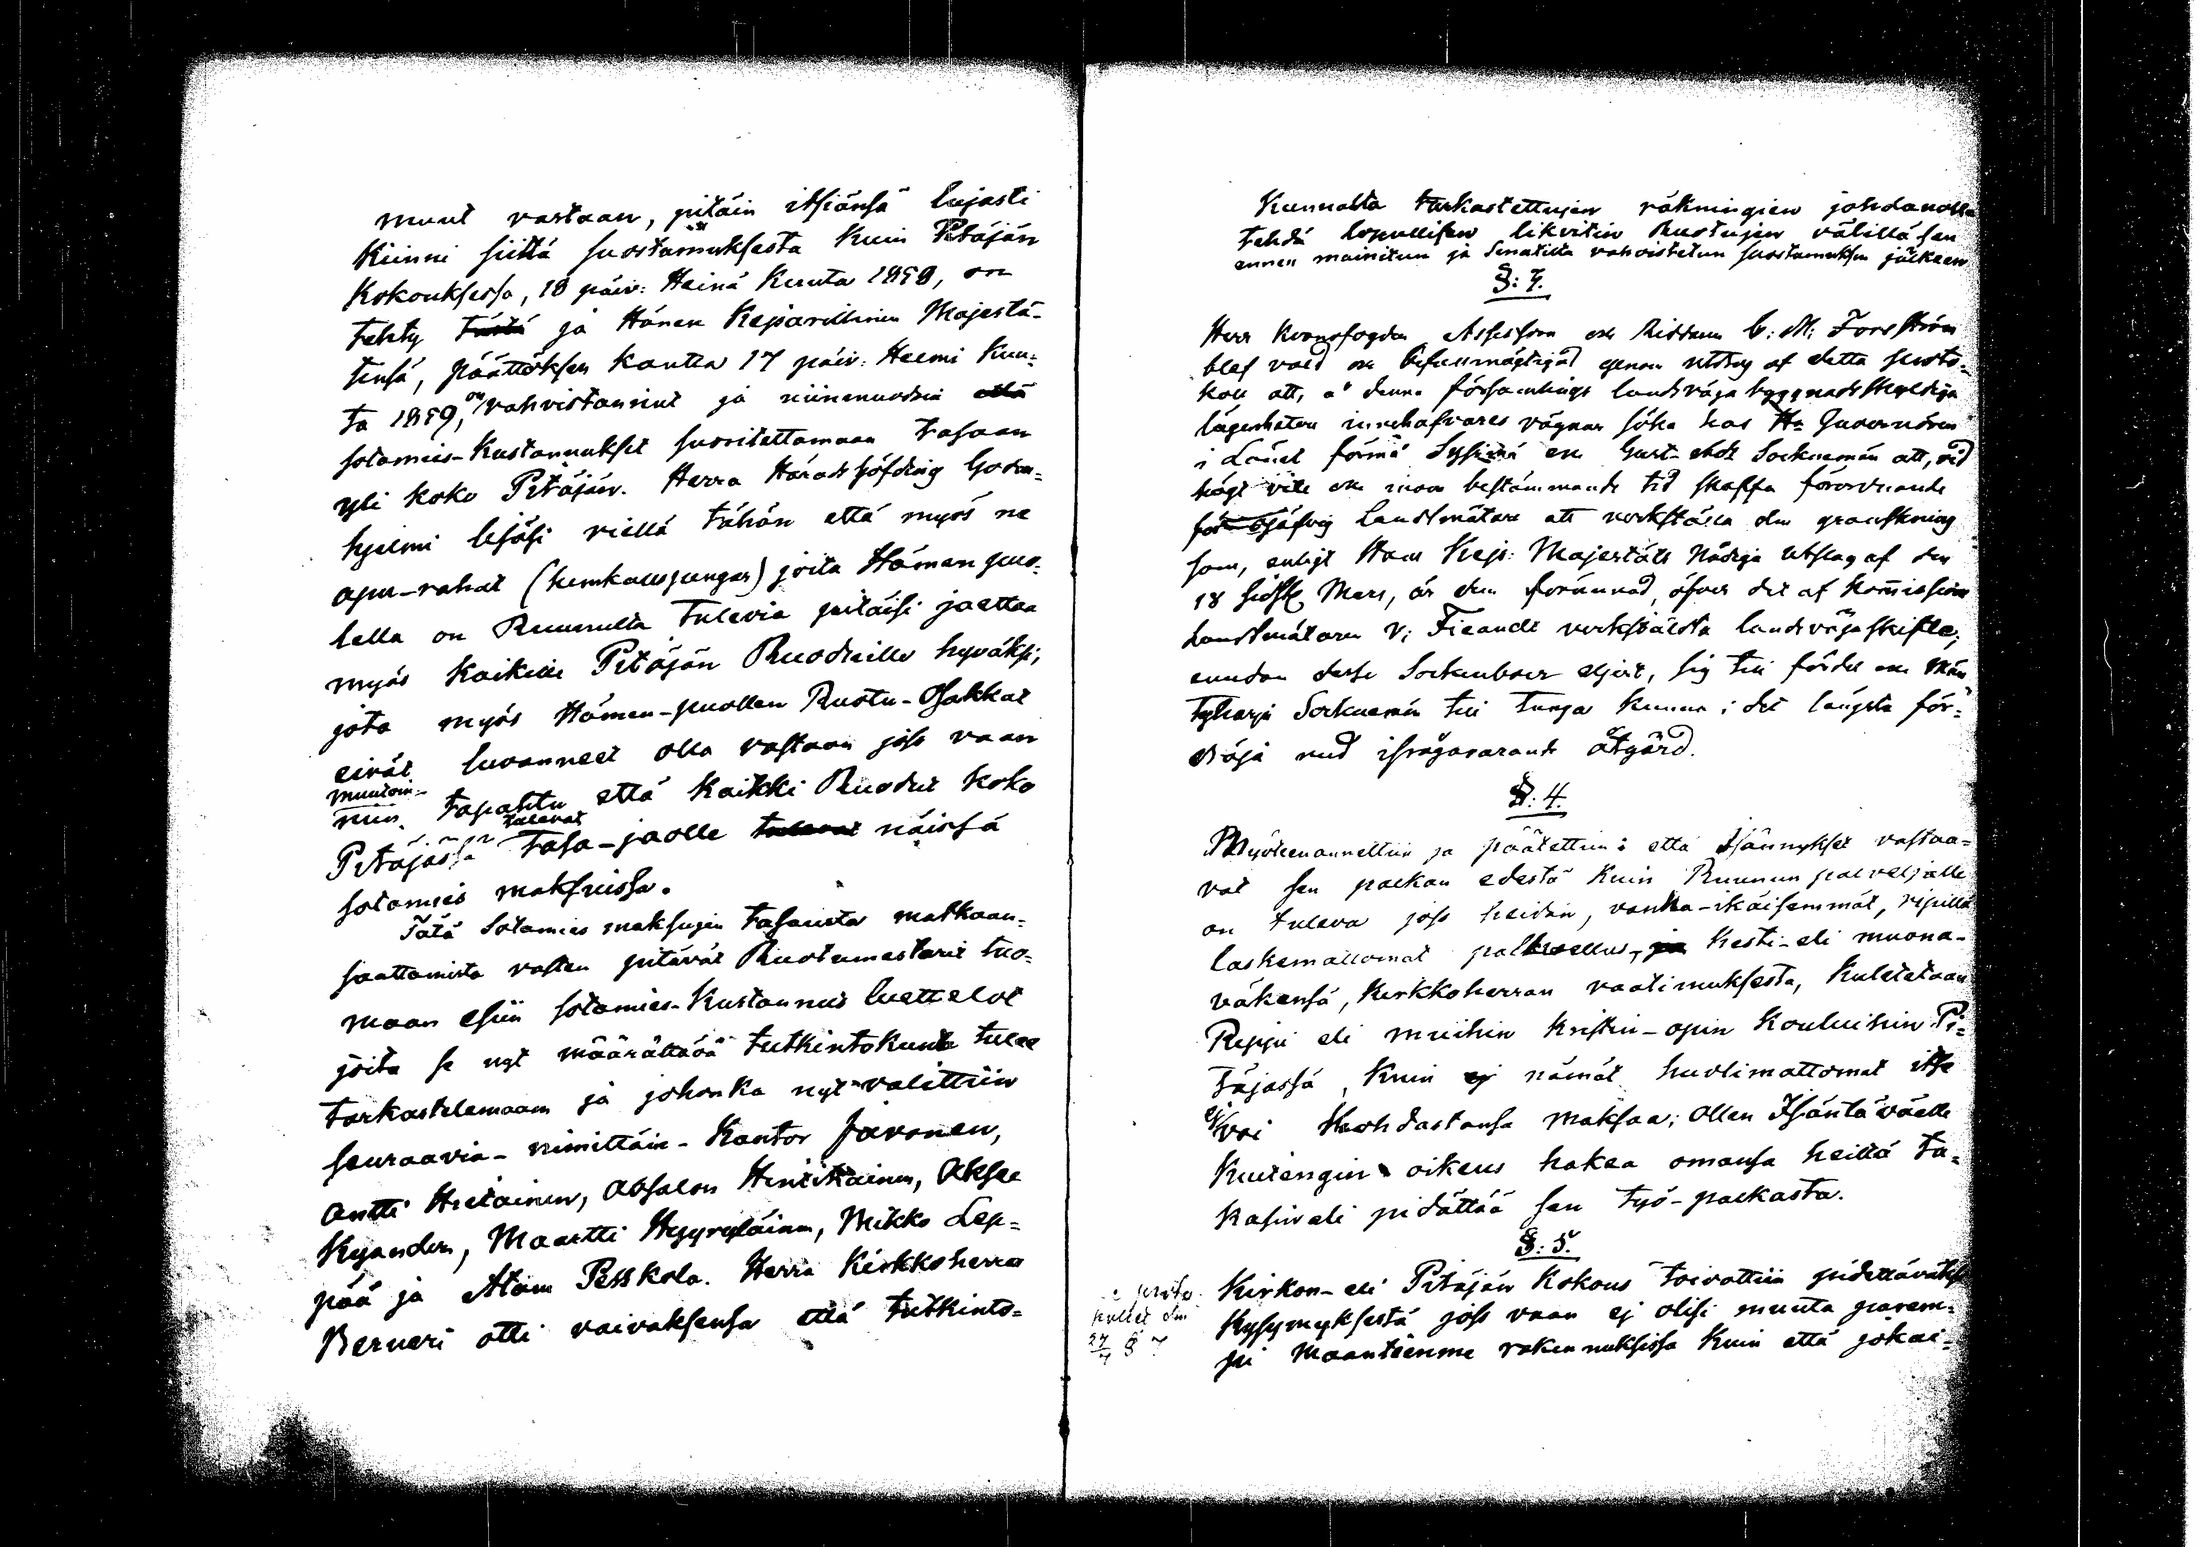 muut vastaan, pitäin itsiänsä lujasti
kiinni siitä suostumuksesta kuin Pitäjän
kokouksessa, 18 päiv: Heinä Kuuta 1858, on
tehty tästä ja Hänen Kejsarillinen Majestä-
tinsä, päättöksen kautta 17 päiv: Helmi Kuu-
ta 1859, on vahvistannut ja niinmuodoin että
sotamies-kustannukset suoritettamaan tasaan
yli koko Pitäjän. Herra Häradshöfding Goden-
hjelmi lisäsi vielä tähän että myös ne
apu-rahat (hemkallspengar) joita Hämen puo-
lella on Ruunulta tulevia pitäisi jaettaa
myös kaikille Pitäjän Ruoduille hyväksi;
jota myös Hämen-puollen Ruotu-Osakkat
eivät luvanneet olla vastaan jos vaan
muutoin
niin tapahtu että kaikki Ruodut koko
Pitäjässä tulevat tasa-jaolle tulevat näissä
sotamies maksuissa.
Tätä Sotamies maksujen tasausta matkaan-
saattamista vasten pitävät Ruotumestarit tuo-
maan esiin sotamies-kustannus luettelot
joita se nyt määrättävä tutkintokunta tulee
tarkastelemaan ja johonka nyt valittiin
seuraavia - nimittäin - Kantor Javanen,
Antti Hietainen, Absalon Hintikainen, Aksel
Kyander, Maartti Hyyryläinen, Mikko Lep-
pää ja Atam Peskola. Herra Kirkkoherra
Berneri otti vaivaksensa että tutkinto-
Kunnalta tarkastettujen räkningien johdanolla
tehdä lopullisen likvitin Ruotujen välillä sen
ennen mainitun ja Senatilta vahvistetun suostumuksen jälkeen
§: 3.
Herr Kronofogden Assessorn och Riddaren C: M: Forsström
blef vald och befullmägtigad genom utdrag af detta proto-
koll att, å denna församlings landsväga byggnadsskyldiga
lägenheters innehafvares vägnar söka hos Hr Guvernören
i Länet förmå Sysmä och Gustaf Adolfs Socknemän att, vid
högt vite och inom bestämmande tid skaffa förordnande
för ojäfvig Landtmätare att verkställa den granskning
som, enligt Hans Kejs: Majestäts Nådiga Utslag af den
18 sidstl. Mars, är dem förunnad, öfver det af Kommissions
Landtmätaren V: Fieandt verkställda landsvägaskifte;
emedan desse Sockenboer eljest, sig till fördel och Män-
tyharju Socknemän till tunga kunna i det längsta för-
dröja med ifrågavarande åtgärd.
§: 4.
Myötenannettiin ja päätettiin: että Isännykset vastaa-
vat sen palkan edestä kuin Ruunun palveljalle
on tuleva jos heidän, vanha-ikäisemmät, ripille
laskemattomat palkollus, ja Kesti- eli muona-
väkensä, Kirkkoherran vaatimuksesta, kuletetaan
Rippi eli muihin kristin-opin kouluihin Pi-
täjässä, kuin ej nämät huolimattomat itse
ej voi Kohdastansa maksaa; ollen Isäntäväelle
kuitengin oikeus hakea omansa heiltä ta-
kasin eli pidättää sen työ-palkasta.
§: 5.
Kirkon- eli Pitäjän Kokous toivottiin pidettäväksi
kysymyksestä jos vaan ej olisi muuta parem-
pi Maanteienme rakennuksissa kuin että jokai-